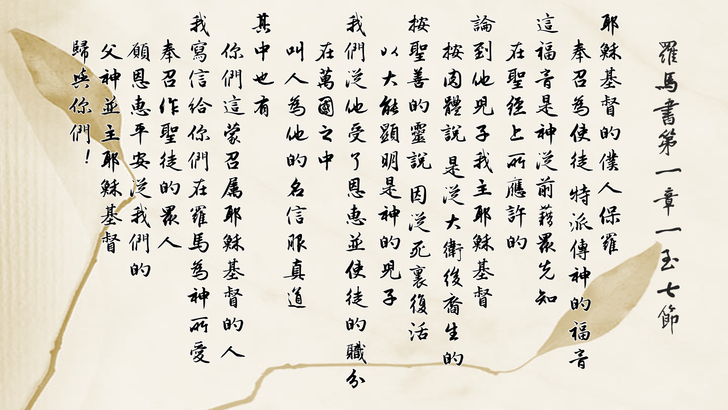 羅馬書第一章一至七節
耶穌基督的僕人保羅
奉召為使徒 特派傳神的福音
這福音是神從前藉眾先知
在聖經上所應許的
論到他兒子我主耶穌基督
按肉體說 是從大衛後裔生的
按聖善的靈說 因從死裏復活
以大能顯明是神的兒子
我們從他受了恩惠並使徒的職分
在萬國之中
叫人為他的名信服真道
其中也有
你們這蒙召屬耶穌基督的人
我寫信給你們在羅馬為神所愛
奉召作聖徒的眾人
願恩惠平安從我們的
父神並主耶穌基督
歸與你們！